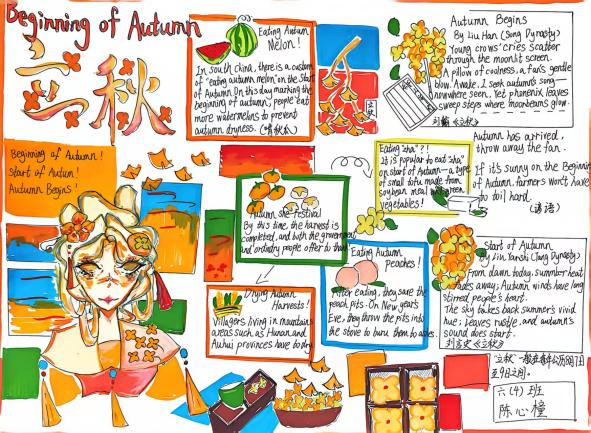 Beginning of Autumn
立秋
Eating Autumn
Melon!
In south china, there is a custom
of "eating autumn melon" on the start
of Autumn. On this day marking the
beginning of autumn, people eat
more watermelons to prevent
autumn dryness. (啃秋瓜)
立秋
Autumn Begins
By Liu Han (Song Dynasty)
Young crows' cries scatter
through the moonlit screen.
A pillow of coolness, a fan's gentle
blow. Awake, I seek autumn's song—
nowhere seen. Yet phoenix leaves
sweep steps where moonbeams glow.
刘翰《立秋》
Beginning of Autumn!
Start of Autum!
Autumn Begins!
Eating "zha"?!
It is popular to eat "zha"
on start of Autumn—a type
of small tofu made from
soybean meal and green
vegetables!
Autumn has arrived,
throw away the fan.
If it's sunny on the Beginning
of Autumn, farmers won't have
to toil hard.
(谚语)
Autumn She Festival
By this time, the harvest is
completed, and both the government
and ordinary people offer to thank
Eating Autumn
Peaches!
After eating, they save the
peach pits. On New year's
Eve, they throw the pits into
the stove to burn them to ashes.
Drying Autumn
Harvests!
Villagers living in mountain
areas such as Hunan and
Auhui provinces have to dry
Start of Autumn
By Lin Yanshi (Tang Dynasty)
From dawn today, summer heat
fades away; Autumn winds have long
stirred people's heart.
The sky takes back summer's vivid
hue; Leaves rustle, and autumn's
sound does start.
刘言史《立秋》
"立秋"一般在每年公历8月7日
至9日之间。
六(4)班
陈心橦